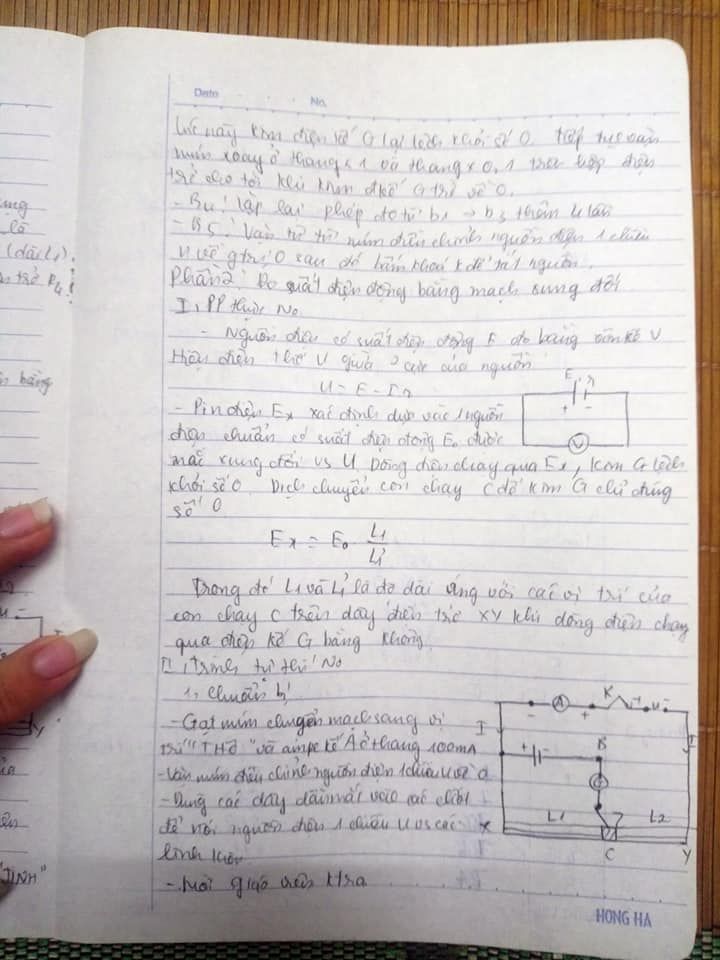 Date No.
Lúc này kim điện kế G lại lệch khỏi số 0. tiếp tục vặn
núm xoay ở thang x 1 và thang x 0,1 trên hộp điện
trở cho tới khi kim đkế G trở về 0.
- B4: lặp lại phép đo từ b1 → b3 thêm 4 lần
- B5: Vặn từ từ núm điều chỉnh nguồn điện 1 chiều
U về gtrị 0 sau đó bấm khoá K để tắt nguồn.
Phần 2: Đo suất điện động bằng mạch xung đối
I, PP thực No
- Nguồn điện có suất điện động E đo bằng vôn kế V
Hiệu điện thế U giữa 2 cực của nguồn
U = E - Ir
- Pin điện Ex xác định dựa vào 1 nguồn
điện chuẩn có suất điện động E0 được
mắc xung đối vs U. Dòng điện chạy qua Ex, kim G lệch
khỏi số 0. Dịch chuyển con chạy C để kim G chỉ đúng
số 0
Ex = E0 L1/L1'
Trong đó L1 và L1' là độ dài ứng với các vị trí của
con chạy C trên dây điện trở XY khi dòng điện chạy
qua điện kế G bằng không.
II, trình tự thí No
1, chuẩn bị
- Gạt núm chuyển mạch sang vị
trí "THĐ" và ampe kế A ở thang 100mA
- Vặn núm điều chỉnh nguồn điện 1 chiều U về 0
- Dùng các dây dẫn mắc vào các chốt
để nối nguồn điện 1 chiều U vs các
linh kiện
- Mời giáo viên ktra
E r
+ -
V
- A + K + U -
I I
+ - B
G
L1 L2
X C Y
HONG HA